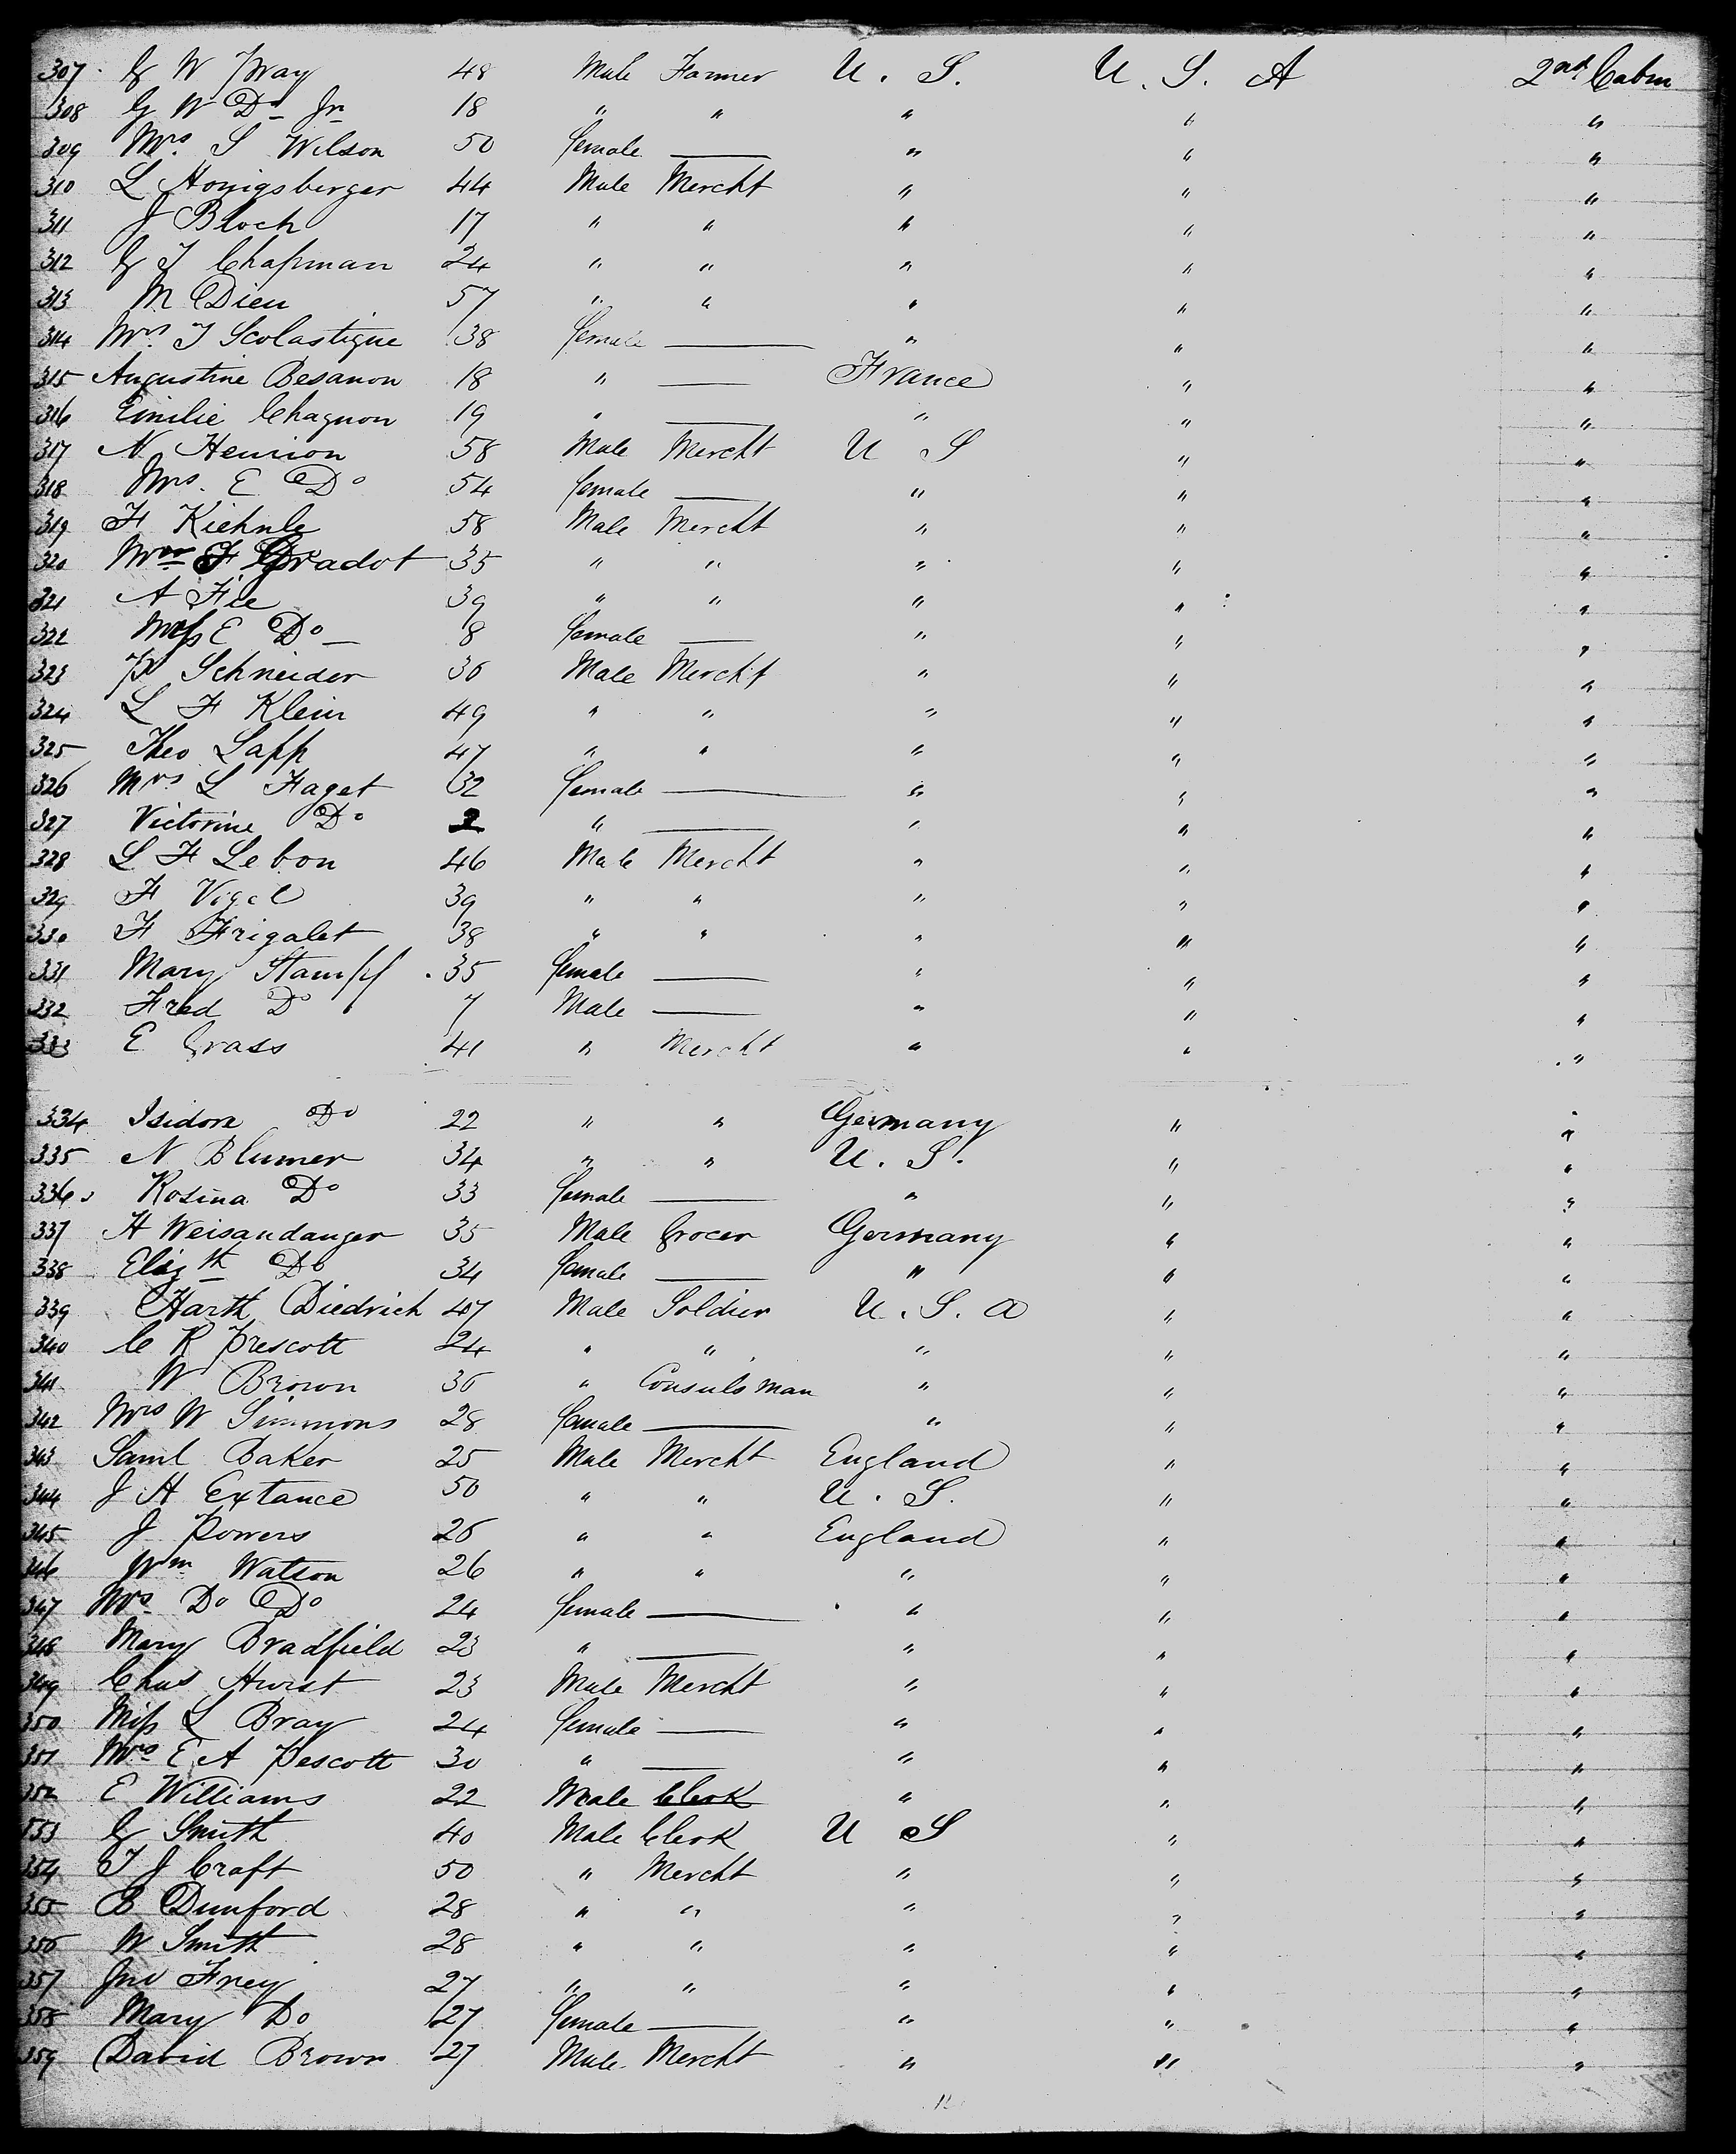 307 G W Tway 48 Male Farmer U. S. U. S. A 2nd Cabin
308 G W Do Jr 18 " " " " "
309 Mrs. S Wilson 50 female — " " "
310 L Honigsberger 44 Male Mercht " " "
311 J Bloch 17 " " " " "
312 G T Chapman 24 " " " " "
313 M Dieu 57 " " " " "
314 Mrs. T Scolastique 38 female — " " "
315 Augustine Besanon 18 " — France " "
316 Emilie Chagnon 19 " — " " "
317 N Henrion 58 Male Mercht U S " "
318 Mrs. E Do 54 female — " " "
319 F Kiehnle 58 Male Mercht " " "
320 F Gradot 35 " " " " "
321 A Fie 39 " " " " "
322 Miss E Do 8 female — " " "
323 P Schneider 36 Male Mercht " " "
324 L F Klein 49 " " " " "
325 Theo Lapp 47 " " " " "
326 Mrs L Faget 32 female — " " "
327 Victorine Do 2 " — " " "
328 L F Lebon 46 Male Mercht " " "
329 F Vigel 39 " " " " "
330 F Frigalet 38 " " " " "
331 Mary Stampf 35 female — " " "
332 Fred Do 7 Male — " " "
333 E Grass 41 " Mercht " " "
334 Isidore Do 22 " " Germany " "
335 N Blumer 34 " " U. S. " "
336 Rosina Do 33 female — " " "
337 H Weisandanger 35 Male Grocer Germany " "
338 Elizth Do 34 female — " " "
339 Harth Diedrich 47 Male Soldier U. S. A " "
340 C R Prescott 24 " " " " "
341 W Brown 36 " Consuls man " " "
342 Mrs W Simmons 28 female — " " "
343 Saml Baker 25 Male Mercht England " "
344 J H Extance 50 " " U. S. " "
345 J Powers 26 " " England " "
346 Wm Watson 26 " " " " "
347 Mrs Do Do 24 female — " " "
348 Mary Bradfield 23 " — " " "
349 Chas Hurst 23 Male Mercht " " "
350 Miss L Bray 24 female — " " "
351 Mrs E A Pescott 30 " — " " "
352 E Williams 22 Male Clerk " " "
353 G Smith 40 Male Clerk U S " "
354 T J Craft 50 " Mercht " " "
355 B Dunford 28 " " " " "
356 W Smith 28 " " " " "
357 Jno Frey 27 " " " " "
358 Mary Do 27 female — " " "
359 David Brown 27 Male Mercht " " "